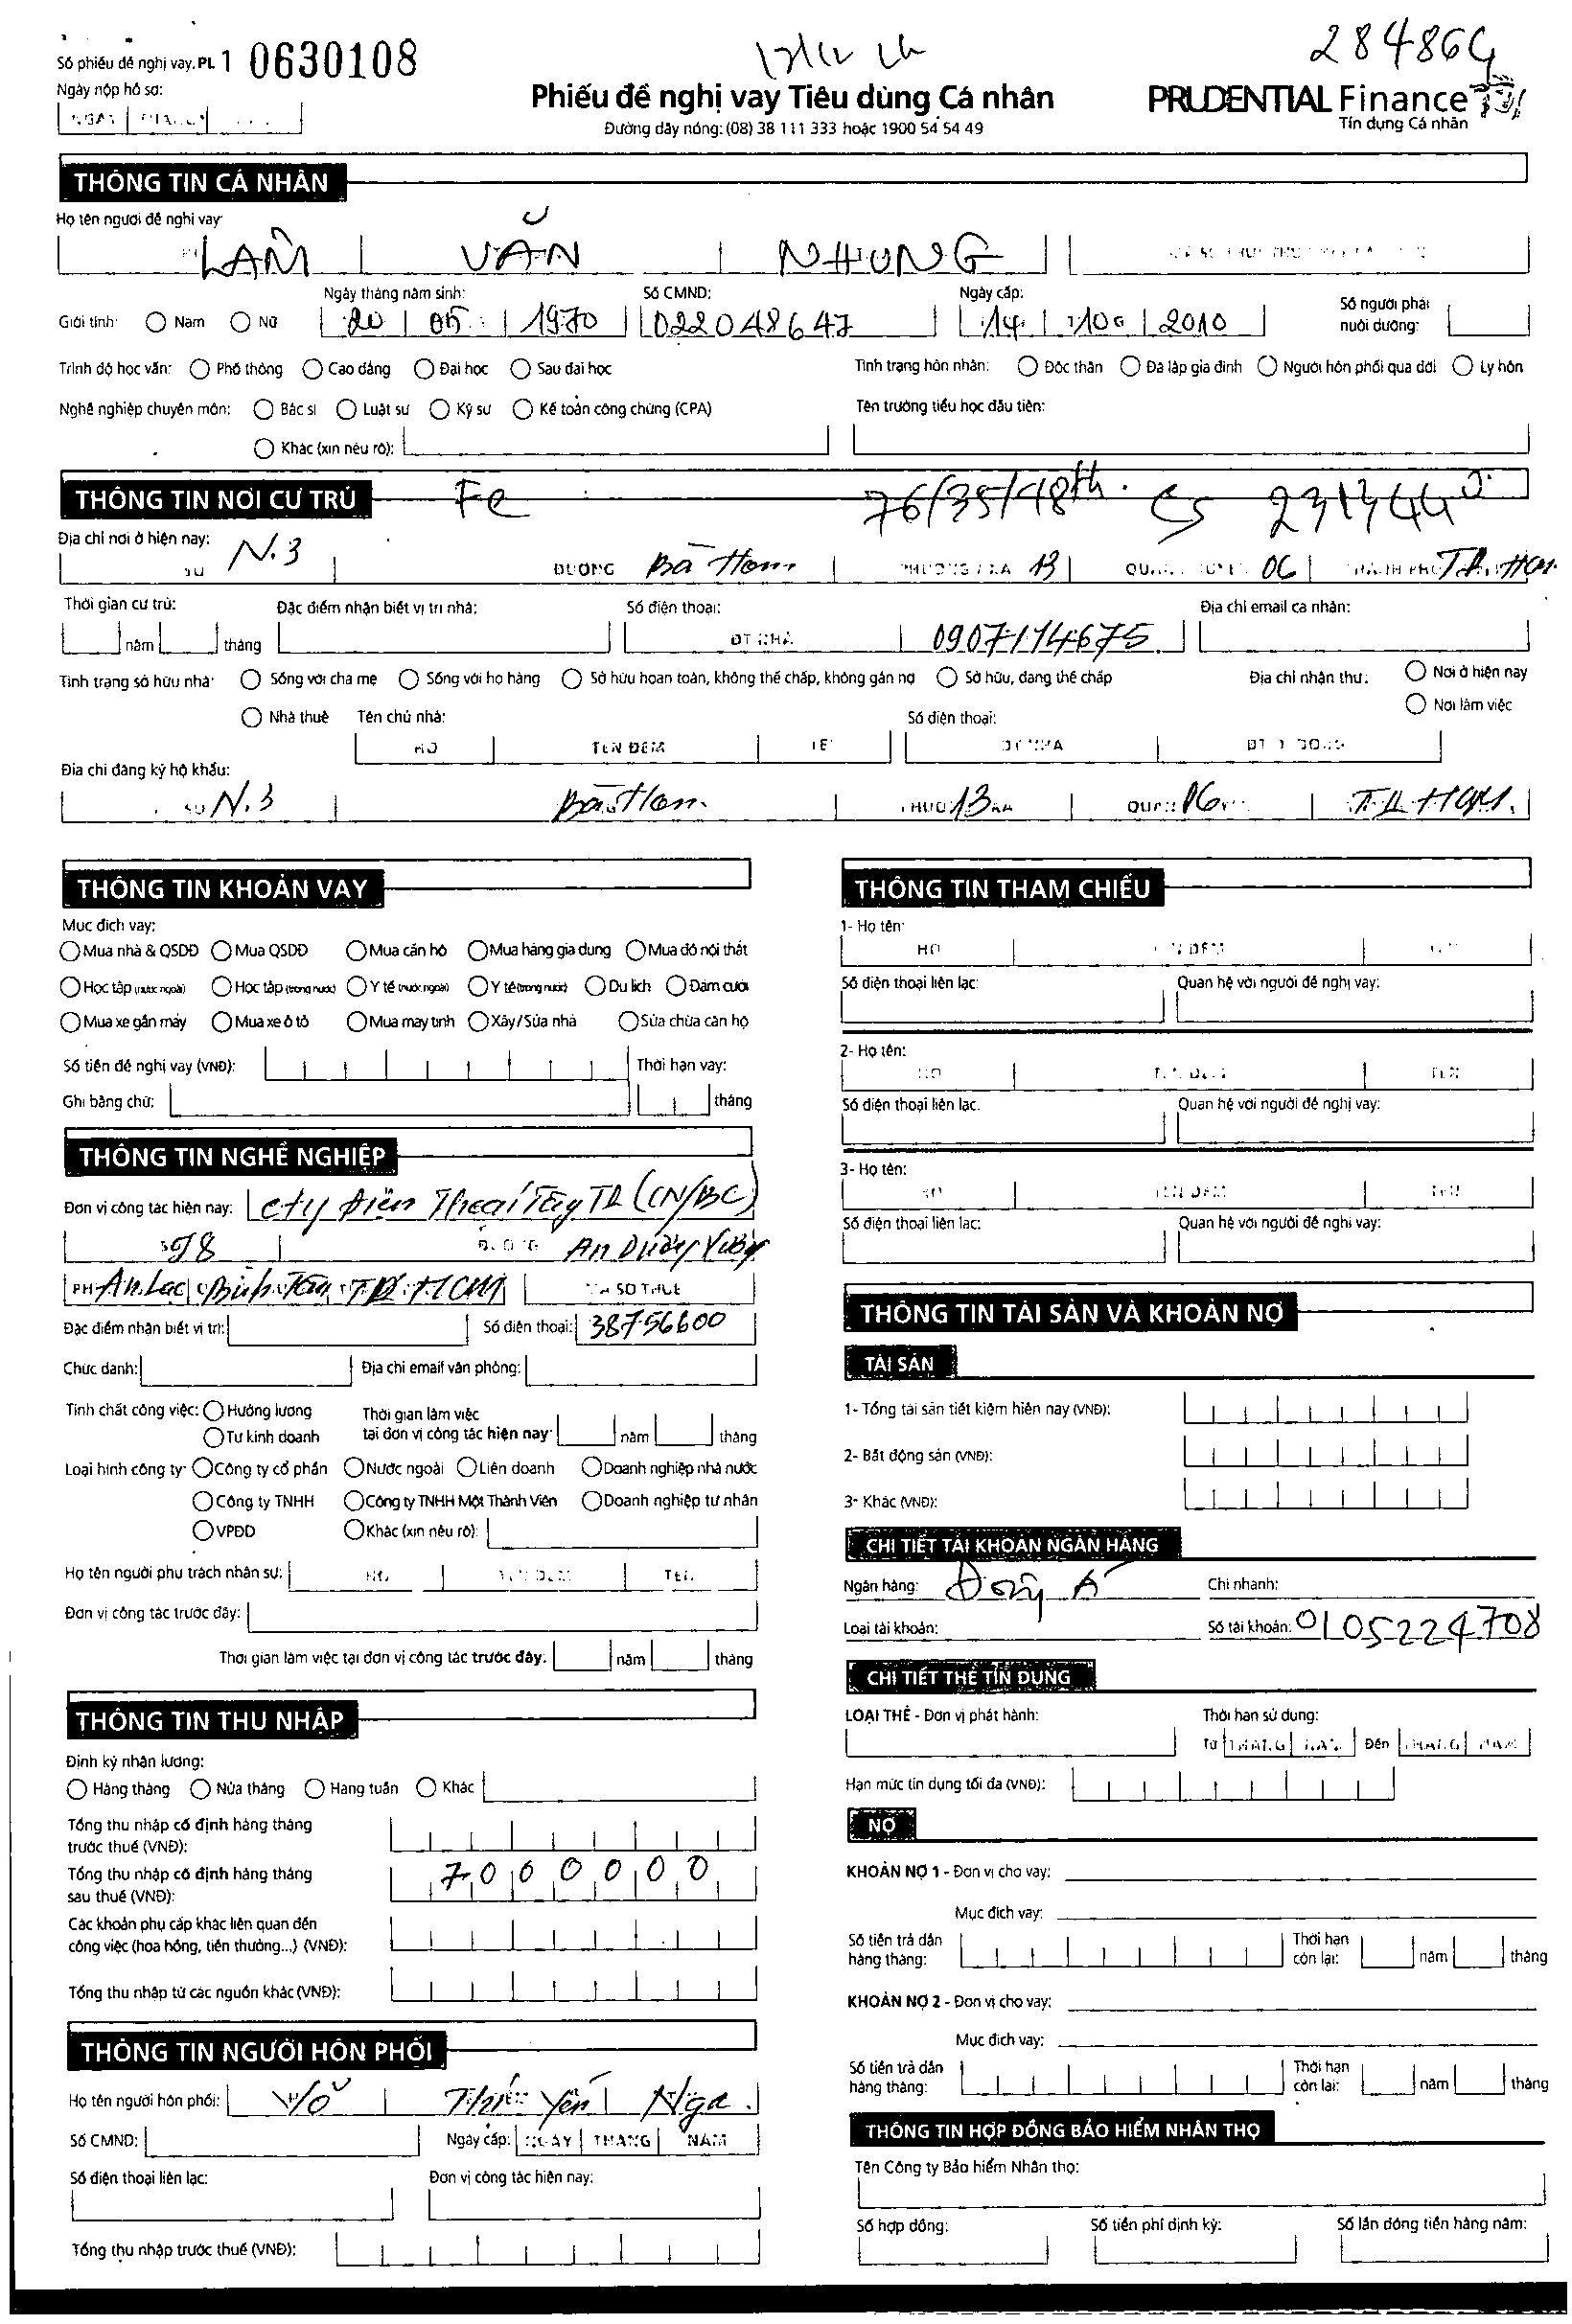 Số phiếu đề nghị vay. PL 1 0630108
284864
Ngày nộp hồ sơ:
Phiếu đề nghị vay Tiêu dùng Cá nhân
PRUDENTIAL Finance
Đường dây nóng: (08) 38 111 333 hoặc 1900 54 54 49
Tín dụng Cá nhân
THÔNG TIN CÁ NHÂN
Họ tên người đề nghị vay
LAM VĂN NHUNG
Ngày tháng năm sinh: Số CMND: Ngày cấp: Số người phải nuôi dưỡng:
Giới tính: Nam Nữ 20 05 1970 022048647 14 10 2010
Trình độ học vấn: Phổ thông Cao đẳng Đại học Sau đại học Tình trạng hôn nhân: Độc thân Đã lập gia đình Người hôn phối qua đời Ly hôn
Nghề nghiệp chuyên môn: Bác sĩ Luật sư Kỹ sư Kế toán công chứng (CPA) Tên trường tiểu học đầu tiên:
Khác (xin nêu rõ):
THÔNG TIN NƠI CƯ TRÚ 76/35/48th.
Địa chỉ nơi ở hiện nay:
SỐ N.3 ĐƯỜNG Bà Hom 13 06 TP. HCM
Thời gian cư trú: Đặc điểm nhận biết vị trí nhà: Số điện thoại: Địa chỉ email cá nhân:
năm tháng ĐT NHÀ 0907114675
Tình trạng sở hữu nhà: Sống với cha mẹ Sống với họ hàng Sở hữu hoàn toàn, không thế chấp, không gán nợ Sở hữu, đang thế chấp Địa chỉ nhận thư: Nơi ở hiện nay
Nhà thuê Tên chủ nhà: Số điện thoại: Nơi làm việc
HỌ TÊN ĐỆM
Địa chỉ đăng ký hộ khẩu:
N.3 Bà Hom 13 06 TP. HCM.
THÔNG TIN KHOẢN VAY
Mục đích vay:
Mua nhà & QSDĐ Mua QSDĐ Mua căn hộ Mua hàng gia dụng Mua đồ nội thất
Học tập (nước ngoài) Học tập (trong nước) Y tế (nước ngoài) Y tế (trong nước) Du lịch Đám cưới
Mua xe gắn máy Mua xe ô tô Mua máy tính Xây/Sửa nhà Sửa chữa căn hộ
Số tiền đề nghị vay (VNĐ): Thời hạn vay:
Ghi bằng chữ: tháng
THÔNG TIN NGHỀ NGHIỆP
Đơn vị công tác hiện nay: Cty Điện Thoại Tây TP (CN/BC)
An Dương Vương
An Lạc Bình Tân TP. HCM
Đặc điểm nhận biết vị trí: Số điện thoại: 38756600
Chức danh: Địa chỉ email văn phòng:
Tính chất công việc: Hưởng lương Thời gian làm việc
Tự kinh doanh tại đơn vị công tác hiện nay: năm tháng
Loại hình công ty: Công ty cổ phần Nước ngoài Liên doanh Doanh nghiệp nhà nước
Công ty TNHH Công ty TNHH Một Thành Viên Doanh nghiệp tư nhân
VPĐD Khác (xin nêu rõ):
Họ tên người phụ trách nhân sự:
Đơn vị công tác trước đây:
Thời gian làm việc tại đơn vị công tác trước đây: năm tháng
THÔNG TIN THU NHẬP
Định kỳ nhận lương:
Hàng tháng Nửa tháng Hàng tuần Khác
Tổng thu nhập cố định hàng tháng
trước thuế (VNĐ):
Tổng thu nhập cố định hàng tháng
sau thuế (VNĐ): 7000000
Các khoản phụ cấp khác liên quan đến
công việc (hoa hồng, tiền thưởng...) (VNĐ):
Tổng thu nhập từ các nguồn khác (VNĐ):
THÔNG TIN NGƯỜI HÔN PHỐI
Họ tên người hôn phối: Võ Thị Yến Nga.
Số CMND: Ngày cấp: NGÀY THÁNG NĂM
Số điện thoại liên lạc: Đơn vị công tác hiện nay:
Tổng thu nhập trước thuế (VNĐ):
THÔNG TIN THAM CHIẾU
1- Họ tên:
HỌ
Số điện thoại liên lạc: Quan hệ với người đề nghị vay:
2- Họ tên:
Số điện thoại liên lạc. Quan hệ với người đề nghị vay:
3- Họ tên:
Số điện thoại liên lạc: Quan hệ với người đề nghị vay:
THÔNG TIN TÀI SẢN VÀ KHOẢN NỢ
TÀI SẢN
1- Tổng tài sản tiết kiệm hiện nay (VNĐ):
2- Bất động sản (VNĐ):
3- Khác (VNĐ):
CHI TIẾT TÀI KHOẢN NGÂN HÀNG
Ngân hàng: Đông Á Chi nhánh:
Loại tài khoản: Số tài khoản: 0105224708
CHI TIẾT THẺ TÍN DỤNG
LOẠI THẺ - Đơn vị phát hành: Thời hạn sử dụng:
Từ THÁNG NĂM Đến THÁNG NĂM
Hạn mức tín dụng tối đa (VNĐ):
NỢ
KHOẢN NỢ 1 - Đơn vị cho vay:
Mục đích vay:
Số tiền trả dần Thời hạn
hàng tháng: còn lại: năm tháng
KHOẢN NỢ 2 - Đơn vị cho vay:
Mục đích vay:
Số tiền trả dần Thời hạn
hàng tháng: còn lại: năm tháng
THÔNG TIN HỢP ĐỒNG BẢO HIỂM NHÂN THỌ
Tên Công ty Bảo hiểm Nhân thọ:
Số hợp đồng: Số tiền phí định kỳ: Số lần đóng tiền hàng năm: